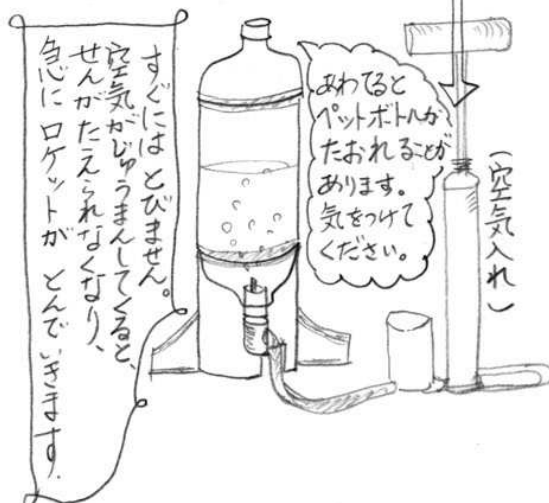 すぐには とびません。
空気がじゅうまんしてくると、
せんがたえられなくなり、
急に ロケットが とんでいきます。
あわてると
ペットボトルが
たおれることが
あります。
気をつけて
ください。
(空気入れ)